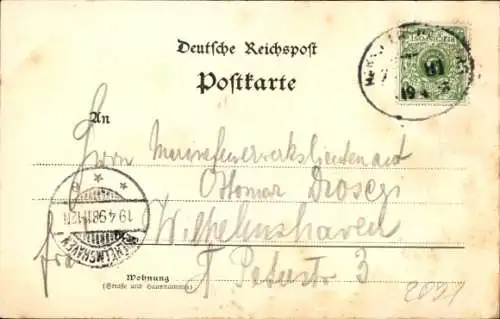 Deutsche Reichspost
Postkarte
An
Herrn Marinefeuerwerkslieutenant
Ottomar
Wilhelmshaven
Peterstr 3
Wohnung
(Straße und Hausnummer)
19.4.98.11-12N
WILHELMSHAVEN